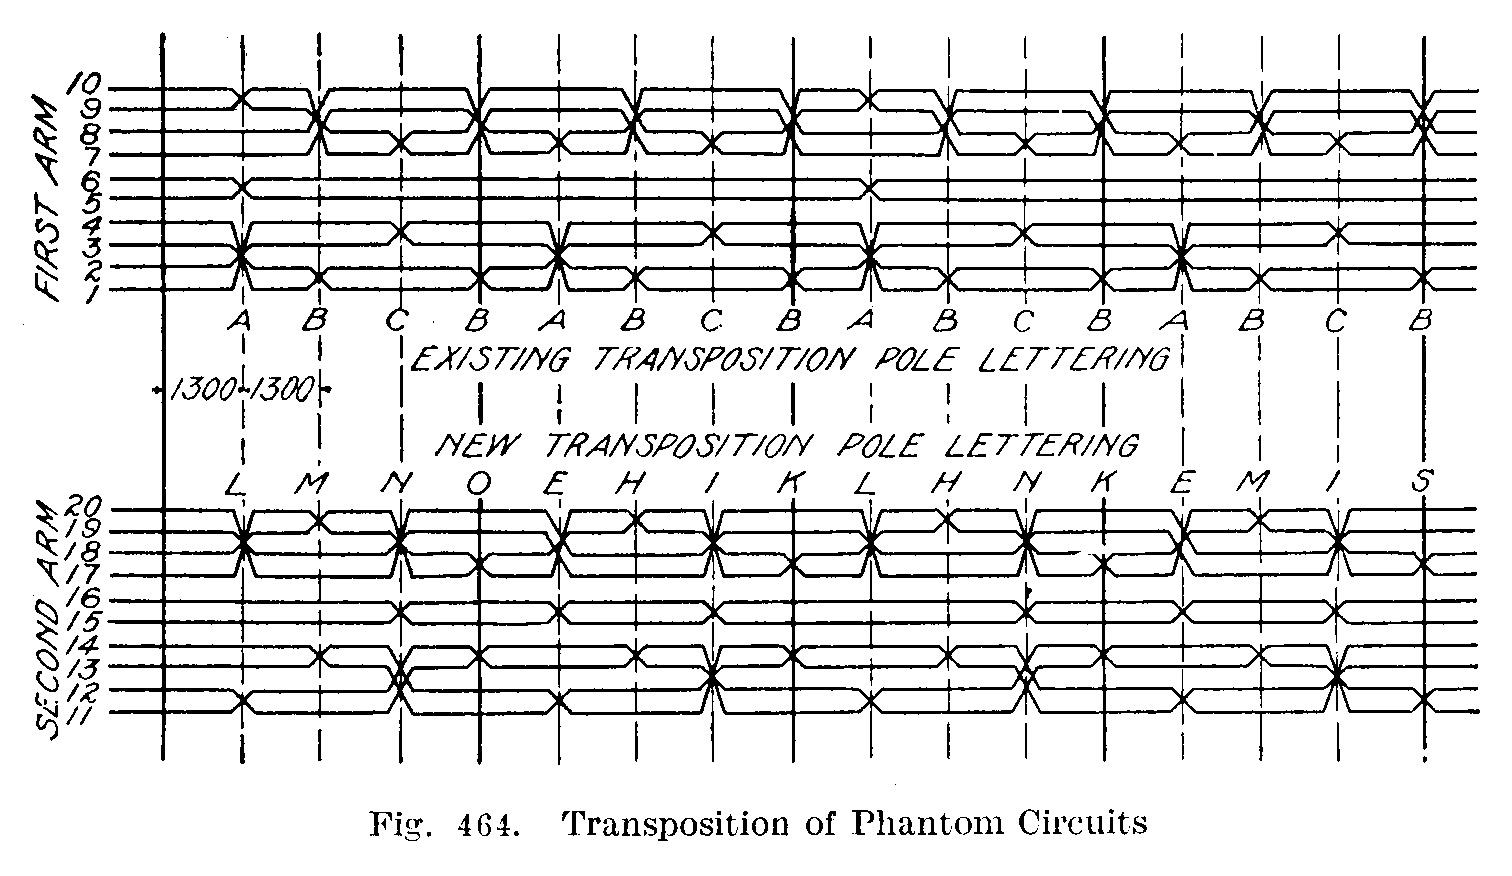 FIRST ARM
10
9
8
7
6
5
4
3
2
1
A B C B A B C B A B C B A B C B
EXISTING TRANSPOSITION POLE LETTERING
1300 1300
NEW TRANSPOSITION POLE LETTERING
L M N O E H I K L H N K E M I S
SECOND ARM
20
19
18
17
16
15
14
13
12
11
Fig. 464. Transposition of Phantom Circuits